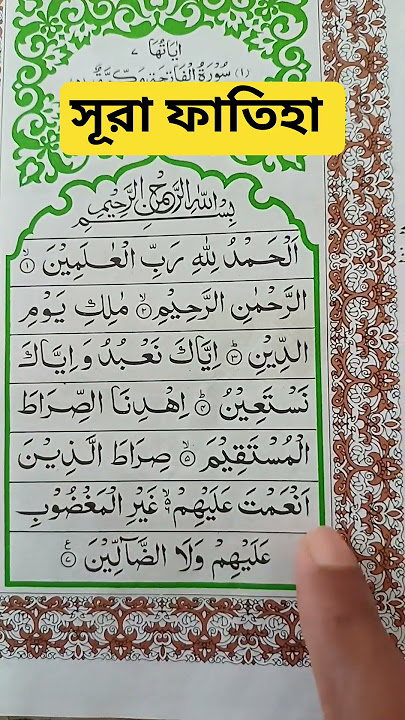 اٰيَاتُهَا ٧
(١) سُوْرَةُ الْفَاتِحَةِ مَكِّيَّةٌ
সূরা ফাতিহা
بِسْمِ اللّٰهِ الرَّحْمٰنِ الرَّحِيْمِ
اَلْحَمْدُ لِلّٰهِ رَبِّ الْعٰلَمِيْنَ ۙ﴿١﴾
الرَّحْمٰنِ الرَّحِيْمِ ۙ﴿٢﴾ مٰلِكِ يَوْمِ
الدِّيْنِ ؕ﴿٣﴾ اِيَّاكَ نَعْبُدُ وَ اِيَّاكَ
نَسْتَعِيْنُ ؕ﴿٤﴾ اِهْدِنَا الصِّرَاطَ
الْمُسْتَقِيْمَ ۙ﴿٥﴾ صِرَاطَ الَّذِيْنَ
اَنْعَمْتَ عَلَيْهِمْ ۙ۬ۦ غَيْرِ الْمَغْضُوْبِ
عَلَيْهِمْ وَلَا الضَّآلِّيْنَ ﴿٧﴾ع